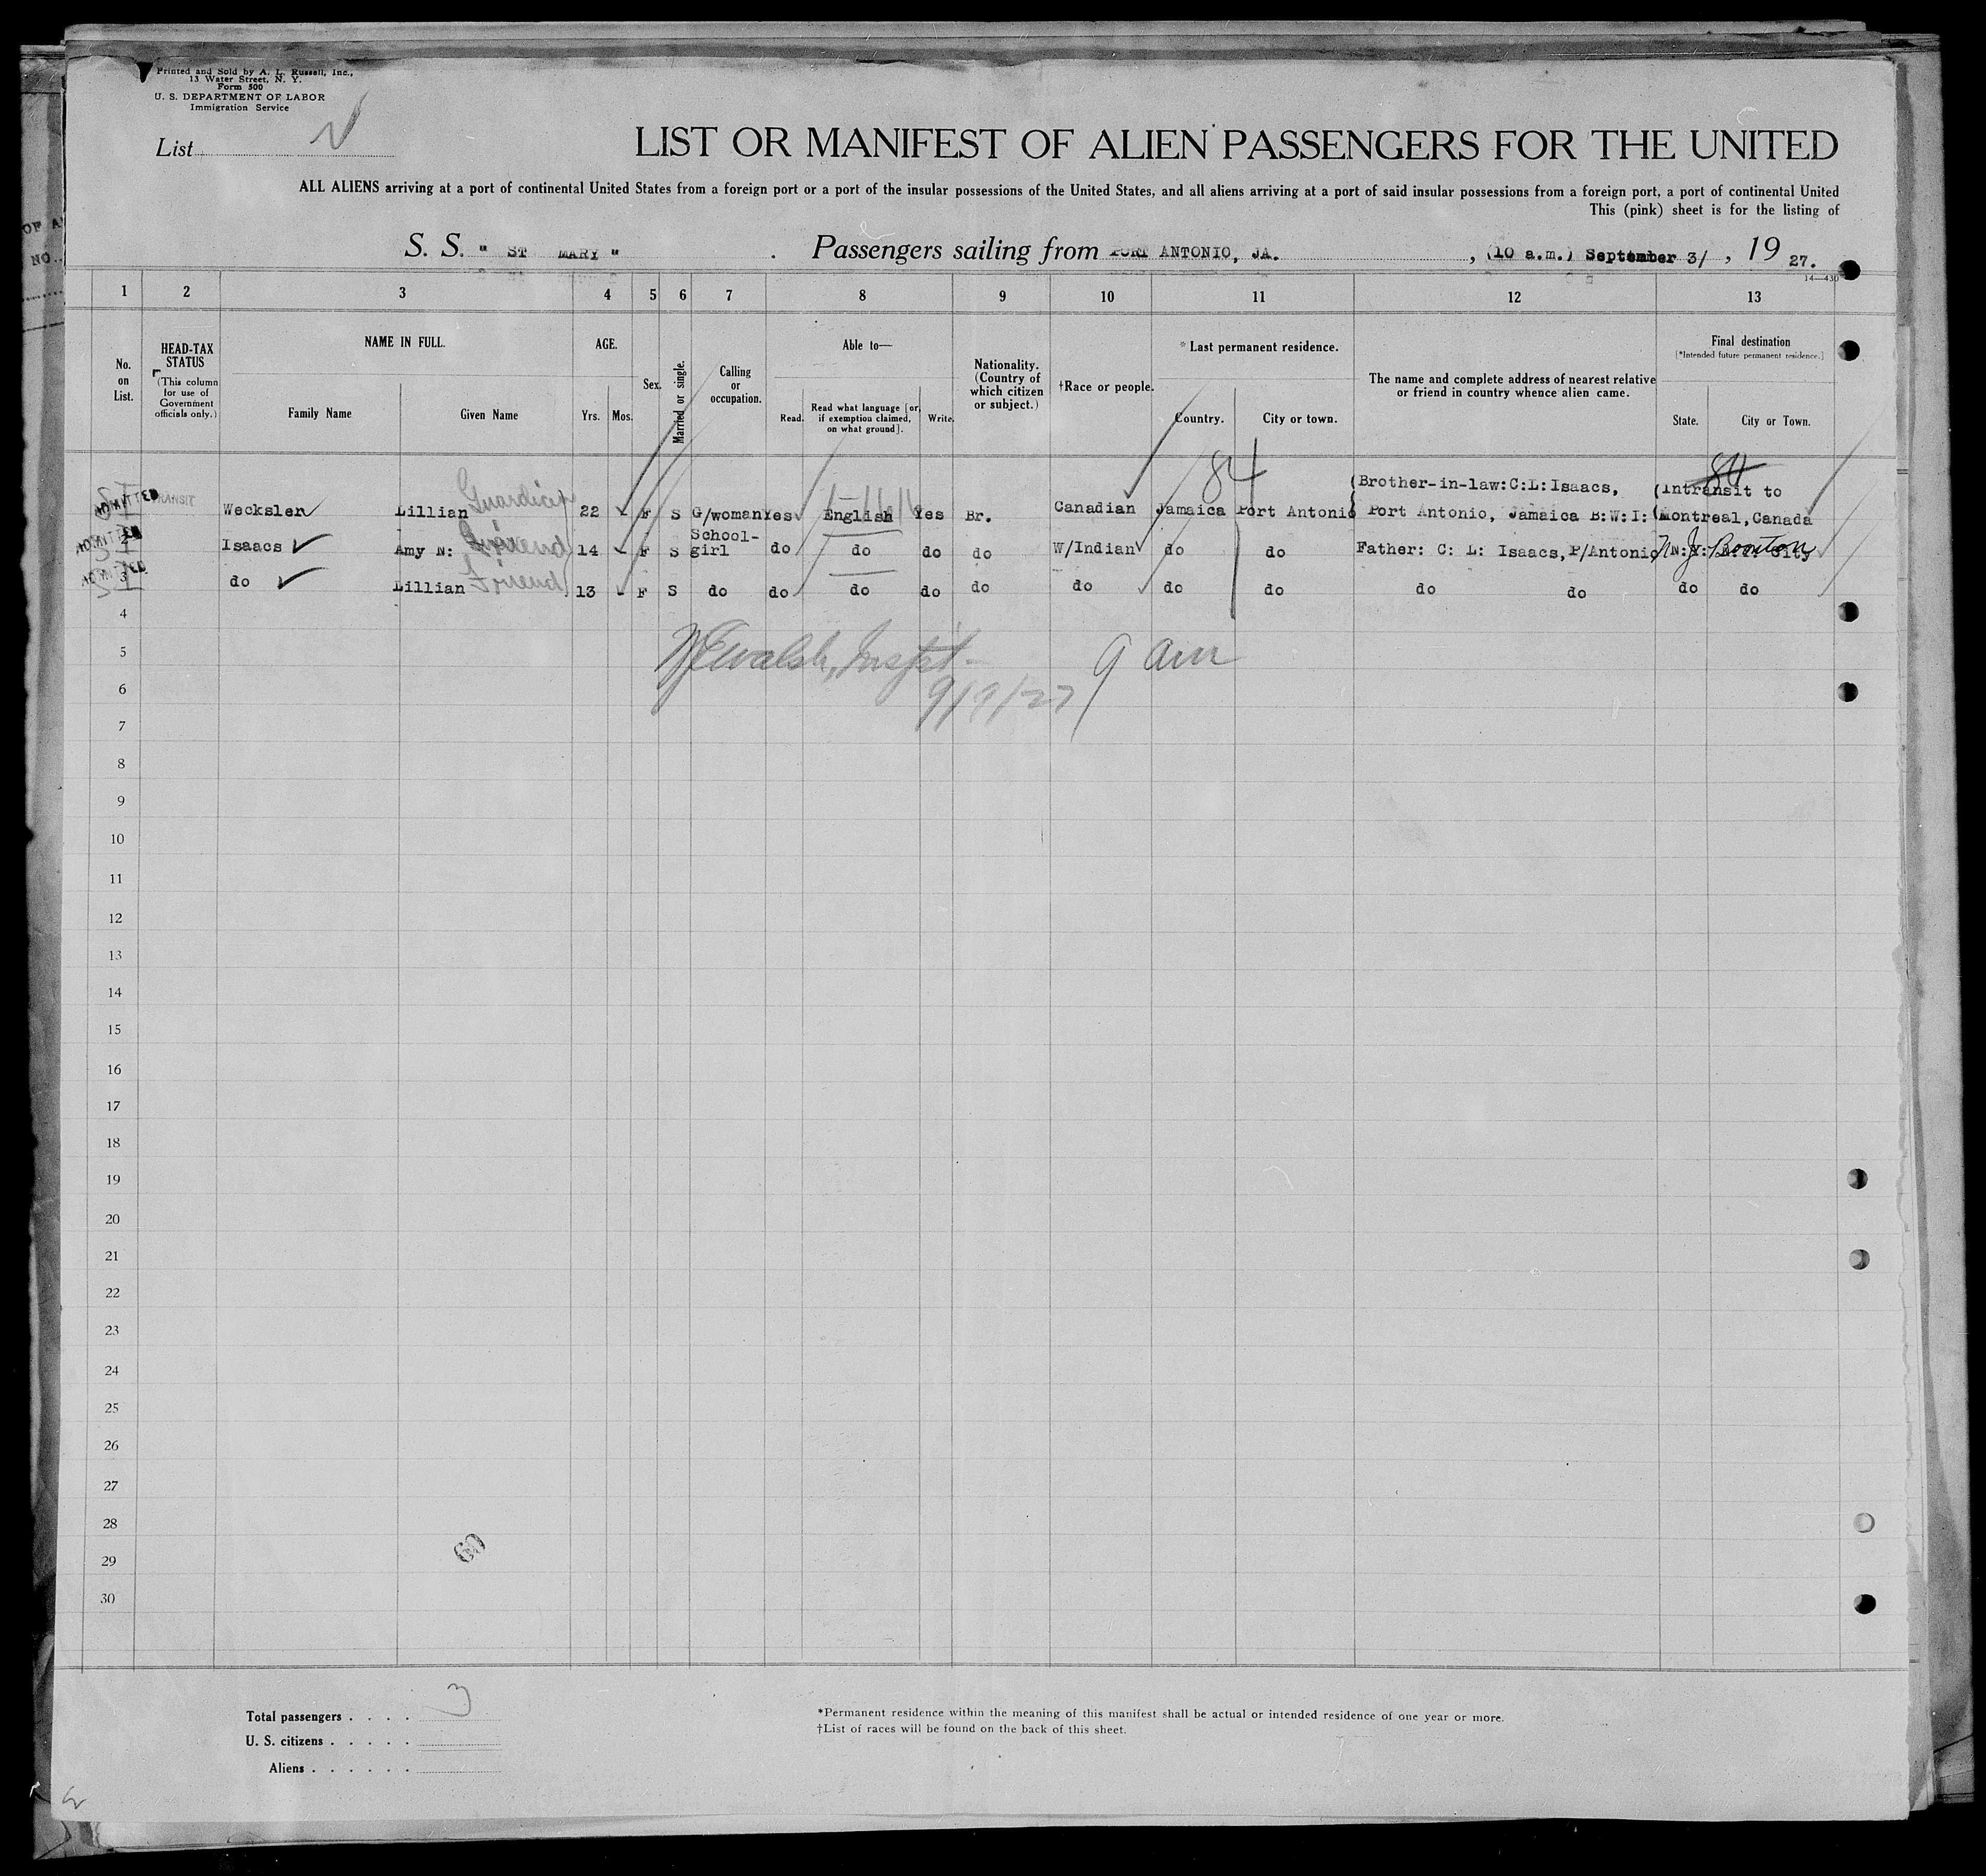 Printed and Sold by A. L. Russell, Inc.,
13 Water Street, N. Y.
Form 500
U. S. DEPARTMENT OF LABOR
Immigration Service
List
LIST OR MANIFEST OF ALIEN PASSENGERS FOR THE UNITED
ALL ALIENS arriving at a port of continental United States from a foreign port or a port of the insular possessions of the United States, and all aliens arriving at a port of said insular possessions from a foreign port, a port of continental United
This (pink) sheet is for the listing of
S. S. " ST MARY " . Passengers sailing from PORT ANTONIO, JA. , (10 a.m.) September 3/ , 19 27.
14—430
1 2 3 4 5 6 7 8 9 10 11 12 13
No. on List.
HEAD-TAX STATUS
(This column for use of Government officials only.)
NAME IN FULL.
Family Name Given Name
AGE.
Yrs. Mos.
Sex.
Married or single.
Calling or occupation.
Able to—
Read. Read what language [or, if exemption claimed, on what ground]. Write.
Nationality. (Country of which citizen or subject.)
†Race or people.
*Last permanent residence.
Country. City or town.
The name and complete address of nearest relative or friend in country whence alien came.
Final destination
[*Intended future permanent residence.]
State. City or Town.
84 84
ADMITTED TRANSIT Wecksler Lillian Guardian 22 - F S G/woman Yes English Yes Br. Canadian Jamaica Port Antonio (Brother-in-law:C:L:Isaacs, Port Antonio, Jamaica B:W:I: (Intransit to (Montreal,Canada
ADMITTED 2 Isaacs Amy N: Friend 14 - F S School-girl do do do do W/Indian do do Father: C: L: Isaacs, P/Antonio N.J. Boonton City
ADMITTED 3 do Lillian Friend 13 - F S do do do do do do do do do do do do
4
5
6
7
8
9
10
11
12
13
14
15
16
17
18
19
20
21
22
23
24
25
26
27
28
29
30
Walsh, Inspt. 9 am
9/9/27
60
Total passengers . . . . 3
U. S. citizens . . . . .
Aliens . . . . . .
*Permanent residence within the meaning of this manifest shall be actual or intended residence of one year or more.
†List of races will be found on the back of this sheet.